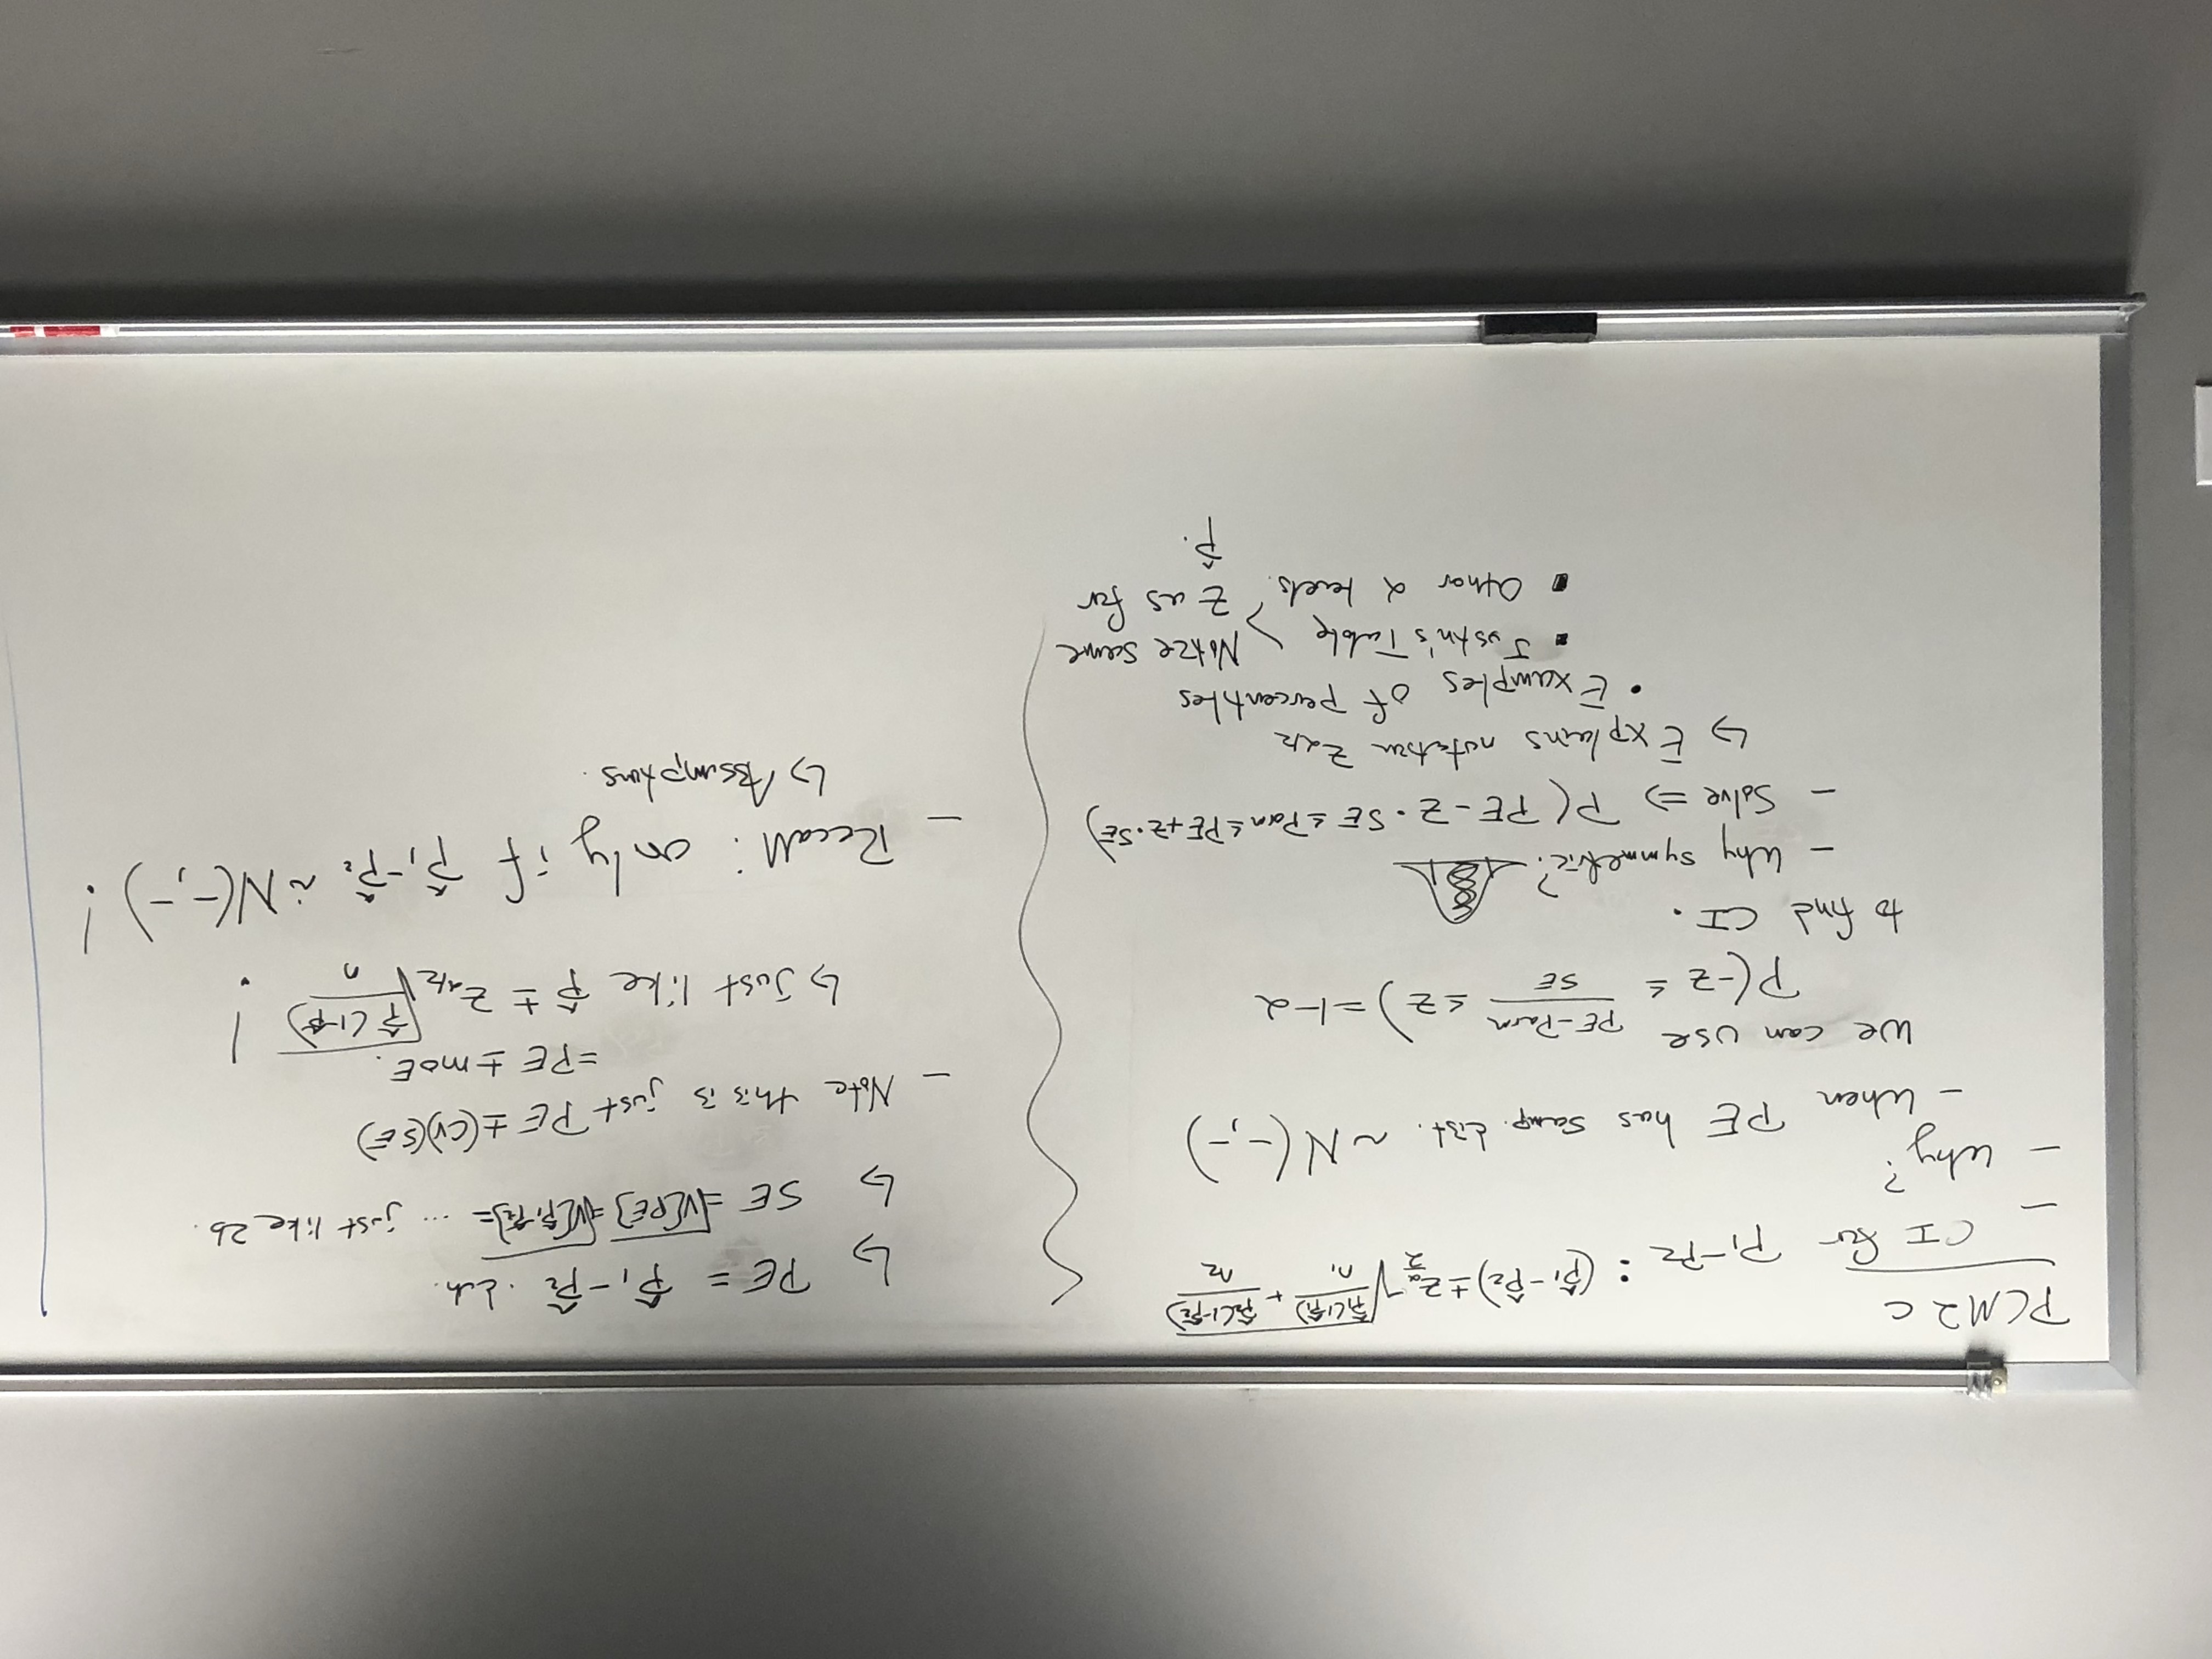 PCM2c
- CI for p₁-p₂ : (p̂₁-p̂₂) ± z_{α/2} √(p̂₁(1-p̂₁)/n₁ + p̂₂(1-p̂₂)/n₂)
- Why?
- When PE has samp. dist. ~ N(-,-)
We can use
P(-z ≤ (PE-Parm)/SE ≤ z) = 1-α
to find CI.
- Why symmetric?
- Solve ⇒ P( PE - z · SE ≤ Parm ≤ PE + z · SE)
↳ Explains notation z_{α/2}
• Examples of percentiles
▪ Justin's Table
▪ Other α levels.
Notice same
z as for
p̂.
↳ PE = p̂₁-p̂₂ . duh.
↳ SE = √V[PE] = √V[p̂₁-p̂₂] = ... just like 2b.
- Note this is just PE ± (CV)(SE)
= PE ± MOE.
↳ just like p̂ ± z_{α/2} √(p̂(1-p̂)/n) !
- Recall: only if p̂₁-p̂₂ ~ N(-,-) !
↳ Assumptions.